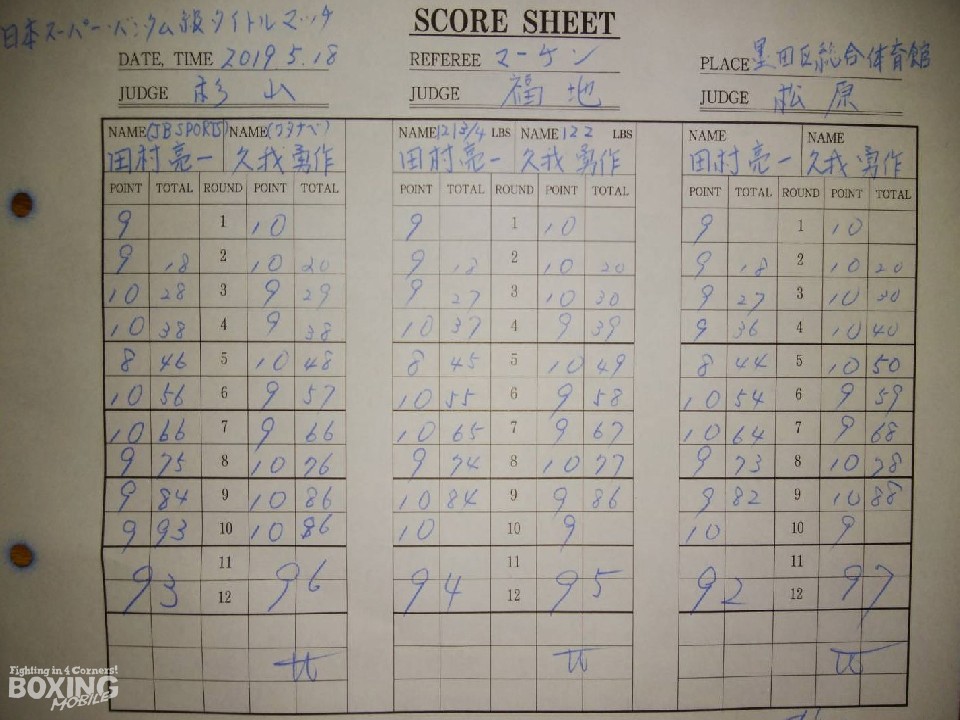 日本スーパー・バンタム級タイトルマッチ
SCORE SHEET
DATE, TIME 2019 5.18 REFEREE マーチン PLACE 墨田区総合体育館
JUDGE 杉山 JUDGE 福地 JUDGE 松原
NAME (JB SPORTS) NAME (ワタナベ) NAME 121 3/4 LBS NAME 122 LBS NAME NAME
田村亮一 久我勇作 田村亮一 久我勇作 田村亮一 久我勇作
POINT TOTAL ROUND POINT TOTAL POINT TOTAL ROUND POINT TOTAL POINT TOTAL ROUND POINT TOTAL
9 1 10 9 1 10 9 1 10
9 18 2 10 20 9 18 2 10 20 9 18 2 10 20
10 28 3 9 29 9 27 3 10 30 9 27 3 10 30
10 38 4 9 38 10 37 4 9 39 9 36 4 10 40
8 46 5 10 48 8 45 5 10 49 8 44 5 10 50
10 56 6 9 57 10 55 6 9 58 10 54 6 9 59
10 66 7 9 66 10 65 7 9 67 10 64 7 9 68
9 75 8 10 76 9 74 8 10 77 9 73 8 10 78
9 84 9 10 86 10 84 9 9 86 9 82 9 10 88
9 93 10 10 86 10 10 9 10 10 9
11 11 11
93 96 94 95 92 97
12 12 12
W W W
Fighting in 4 Corners!
BOXING
MOBILE